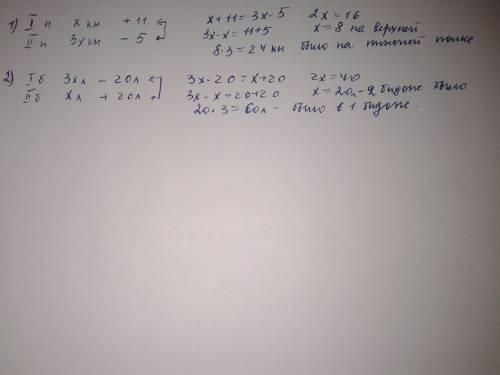 1) I п x кн +11 x+11=3x-5 2x=16
II п 3x кн - 5 3x-x=11+5 x=8 на верхней
8·3=24 кн было на нижней полке
2) I б 3x л - 20л 3x-20=x+20 2x=40
II б x л + 20л 3x-x=20+20 x=20л - 2 бидоне было
20·3=60л - было в 1 бидоне.